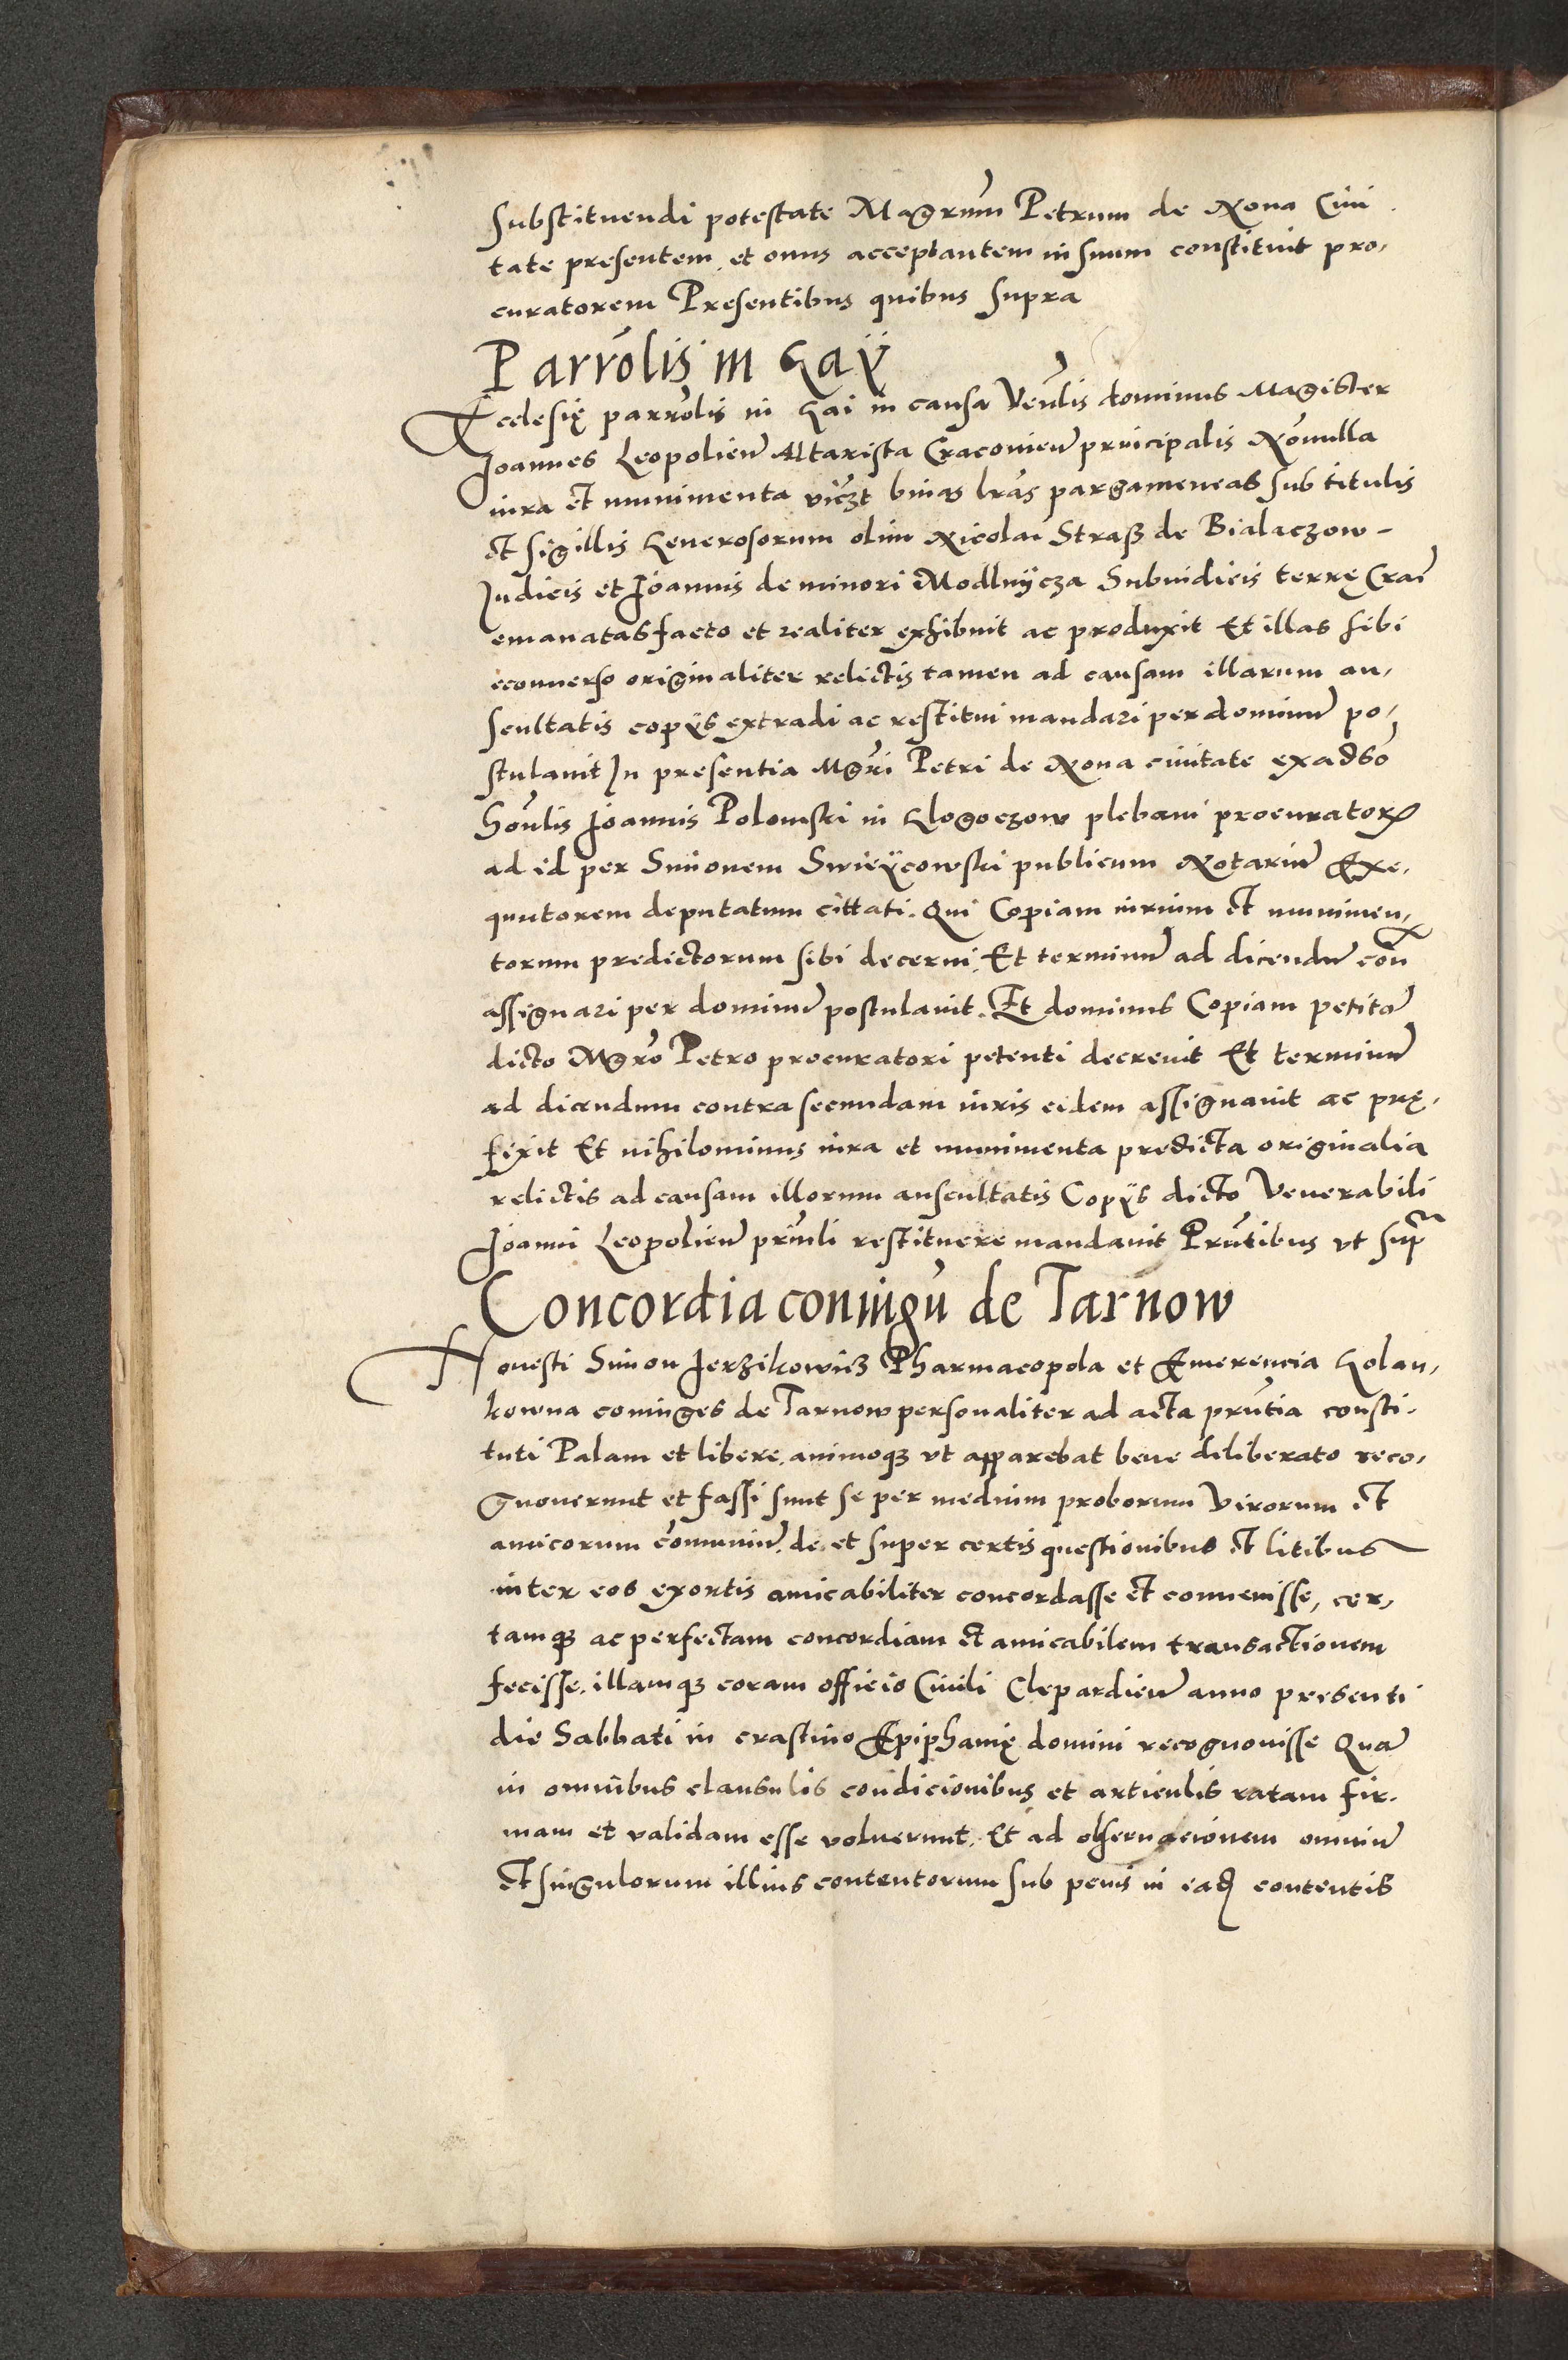 substituendi potestate Magrum̃ Petrum de Noua Ciui
tate presentem et onus acceptantem in suum constituit pro,
curatorem Presentibus quibus supra
Parrõlis in Gaÿ
Ecclesię parrõlis in Gai in causa Veñlis dominus Magister
Joannes Leopolieñ Altarista Cracouieñ principalis Nõnulla
iura et munimenta vicꝫt binas lrãs pargameneas sub titulis
et sigillis Generosorum olim Nicolai Straß de Bialaczow -
Judicis et Joannis de minori Modlnÿcza Subiudicis terrę Craĩ
emanatas facto et realiter exhibuit ac produxit Et illas sibi
econuerso originaliter relictis tamen ad causam illarum au,
scultatis copÿs extradi ac restitui mandari per dominũ po,
stulauit In presentia Mgrĩ Petri de Noua ciuitate ex adũso
Hoñlis Joannis Polomski in Glogoczow plebani procuratoris
ad id per Simonem Swieÿcowski publicum Notariũ Exe,
quutorem deputatum cittati. Qui Copiam iurium et munimen,
torum predictorum sibi decerni. Et terminũ ad dicendũ coñ
assignari per dominũ postulauit. Et dominus Copiam petitã
dicto Mgrõ Petro procuratori petenti decreuit Et terminũ
ad dicendum contra secundam iuris eidem assignauit ac prę,
fixit Et nihilominus iura et munimenta predicta originalia
relictis ad causam illorum auscultatis Copÿs dicto Venerabili
Joanni Leopolieñ prinˉli restituere mandauit Prñtibus vt supˉ
Concordia coniugũ de Tarnow
Honesti Simon Jerzikowicz Pharmacopola et Emerencia Golan,
kowna coniuges de Tarnow personaliter ad acta prñtia consti,
tuti Palam et libere, animoqꝫ vt apparebat bene deliberato reco,
gnouerunt et fassi sunt se per medium proborum Virorum et
amicorum cõmuniũ, de et super certis questionibus et litibus
inter eos exortis amicabiliter concordasse et conuenisse, cer,
tamqꝫ ac perfectam concordiam et amicabilem transactionem
fecisse, illamqꝫ coram officio Ciuili Clepardieñ anno presenti
die Sabbati in crastino Epiphanię domini recognouisse Quã
in omnibus clausulis condicionibus et articulis ratam fir,
mam et validam esse voluerunt. Et ad obseruacionem omniũ
et singulorum illius contentorum sub penis in eadꝫ contentis